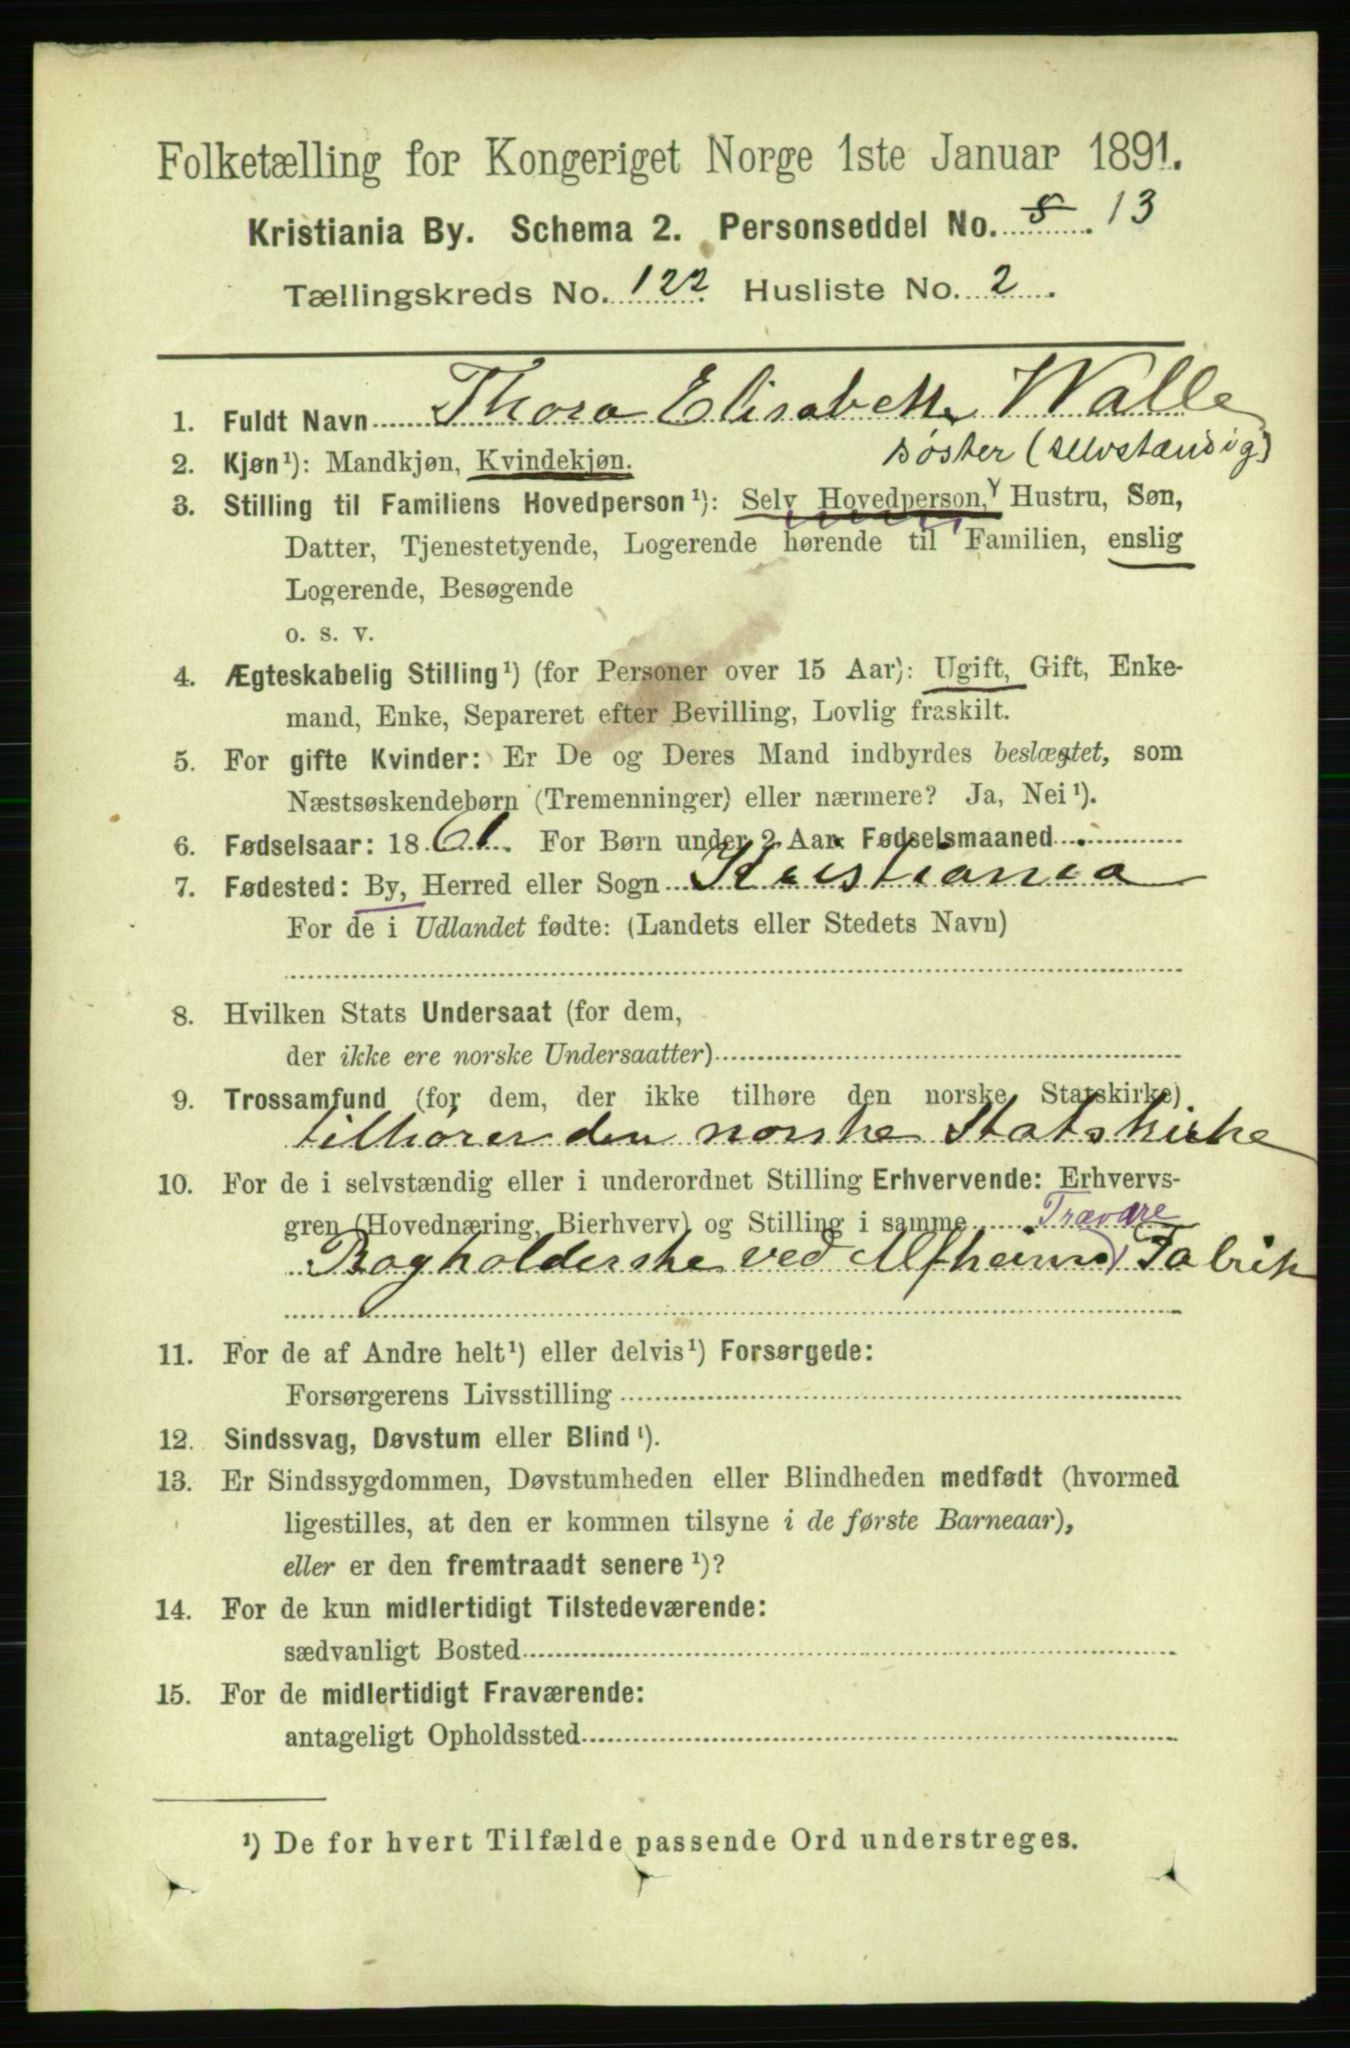 Folketælling for Kongeriget Norge 1ste Januar 1891.
Kristiania By. Schema 2. Personseddel No. 8 13
Tællingskreds No. 122 Husliste No. 2
1. Fuldt Navn Thora Elisabeth Walle
søster (selvstændig)
2. Kjøn¹): Mandkjøn, Kvindekjøn.
3. Stilling til Familiens Hovedperson¹): Selv Hovedperson, Hustru, Søn,
Datter, Tjenestetyende, Logerende hørende til Familien, enslig
Logerende, Besøgende
o. s. v.
4. Ægteskabelig Stilling¹) (for Personer over 15 Aar): Ugift, Gift, Enke-
mand, Enke, Separeret efter Bevilling, Lovlig fraskilt.
5. For gifte Kvinder: Er De og Deres Mand indbyrdes beslægtet, som
Næstsøskendebørn (Tremenninger) eller nærmere? Ja, Nei¹).
6. Fødselsaar: 1861. For Børn under 2 Aar: Fødselsmaaned
7. Fødested: By, Herred eller Sogn Kristiania
For de i Udlandet fødte: (Landets eller Stedets Navn)
8. Hvilken Stats Undersaat (for dem,
der ikke ere norske Undersaatter)
9. Trossamfund (for dem, der ikke tilhøre den norske Statskirke)
tilhører den norske Statskirke
10. For de i selvstændig eller i underordnet Stilling Erhvervende: Erhvervs-
gren (Hovednæring, Bierhverv) og Stilling i samme Trævare
Bogholderske ved Alfheims Fabrik
11. For de af Andre helt¹) eller delvis¹) Forsørgede:
Forsørgerens Livsstilling
12. Sindssvag, Døvstum eller Blind¹).
13. Er Sindssygdommen, Døvstumheden eller Blindheden medfødt (hvormed
ligestilles, at den er kommen tilsyne i de første Barneaar),
eller er den fremtraadt senere¹)?
14. For de kun midlertidigt Tilstedeværende:
sædvanligt Bosted
15. For de midlertidigt Fraværende:
antageligt Opholdssted
¹) De for hvert Tilfælde passende Ord understreges.